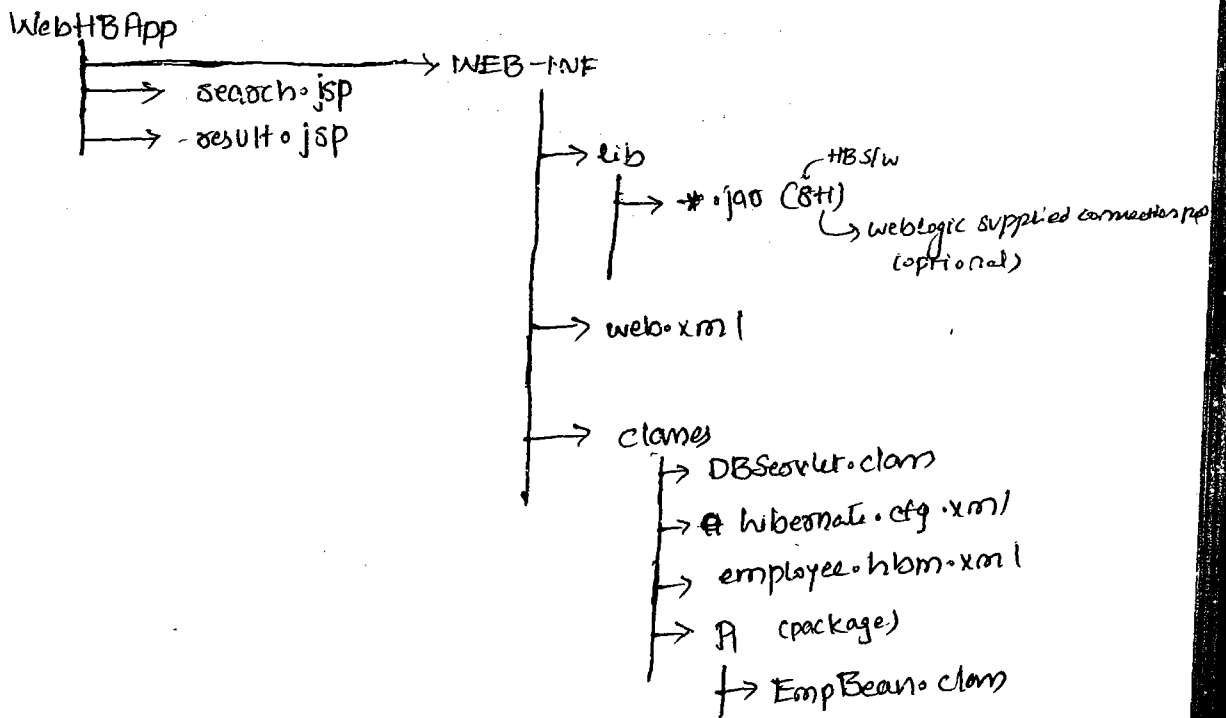 WebHBApp
WEB-INF
search.jsp
result.jsp
lib
HB S/W
*.jar (8+1)
weblogic supplied connection
(optional)
web.xml
classes
DBServlet.class
hibernate.cfg.xml
employee.hbm.xml
(package)
EmpBean.class